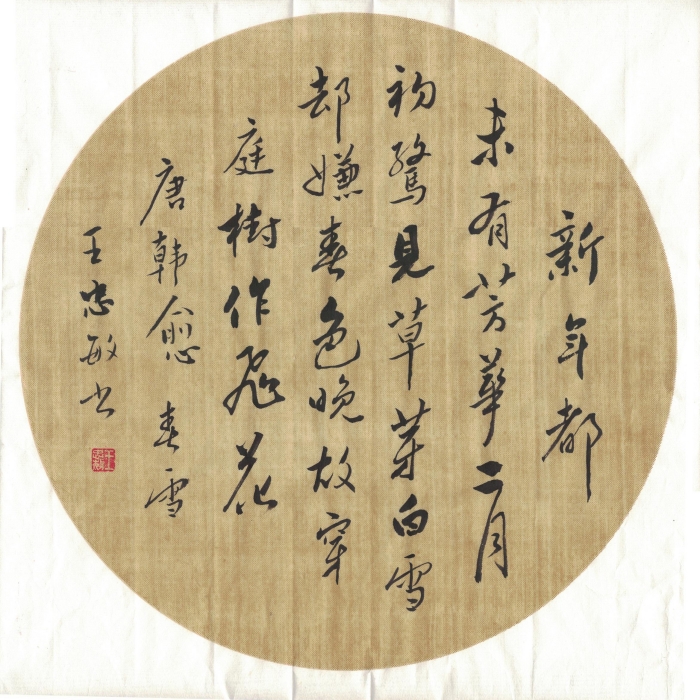 新年都
未有芳華二月
初驚見草芽白雪
却嫌春色晚故穿
庭樹作飛花
唐韩愈 春雪
王忠敏书